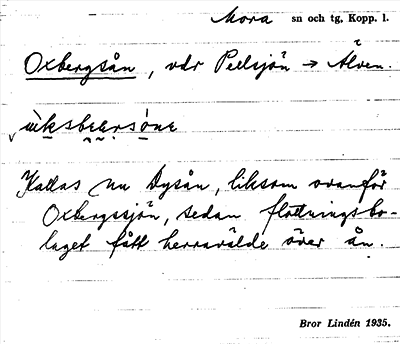 Mora sn och tg, Kopp. l.
Oxbergsån, vdr Pellsjön → Älven.
Kallas nu Dysån, liksom ovanför
Oxbergssjön, sedan flottningsbo-
laget fått herravälde över ån.
Bror Lindén 1935.